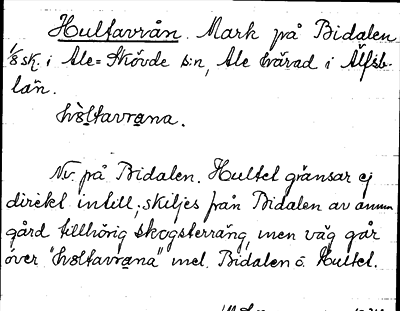 Hultavrån. Mark på Bidalen
1/8 sk. i Ale-Skövde s:n, Ale härad i Älfsb.
län.
hὼltavrana.
Nv. på Bidalen. Hultet gränsar ej
direkt intill, skiljes från Bidalen av annan
gård tillhörig skogsterräng, men väg går
över "hωltavrana" mel. Bidalen o. Hultet.